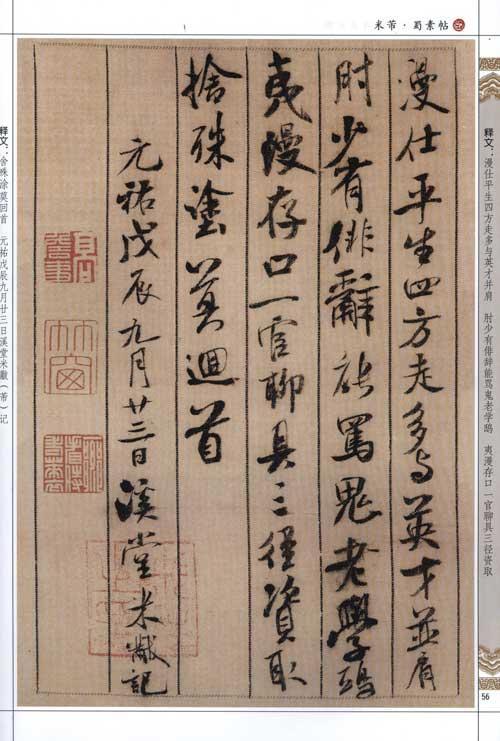 米芾·蜀素帖
释文：漫仕平生四方走多与英才并肩　肘少有俳辞能骂鬼老学鸱　夷漫存口一官聊具三径资取
漫仕平生四方走多与英才並肩
肘少有俳辭能罵鬼老學鴟
夷漫存口一官聊具三徑資取
捨殊塗莫迴首
元祐戊辰九月廿三日溪堂米黻記
竹窗
释文：舍殊涂莫回首　元祐戊辰九月廿三日溪堂米黻（芾）记
56